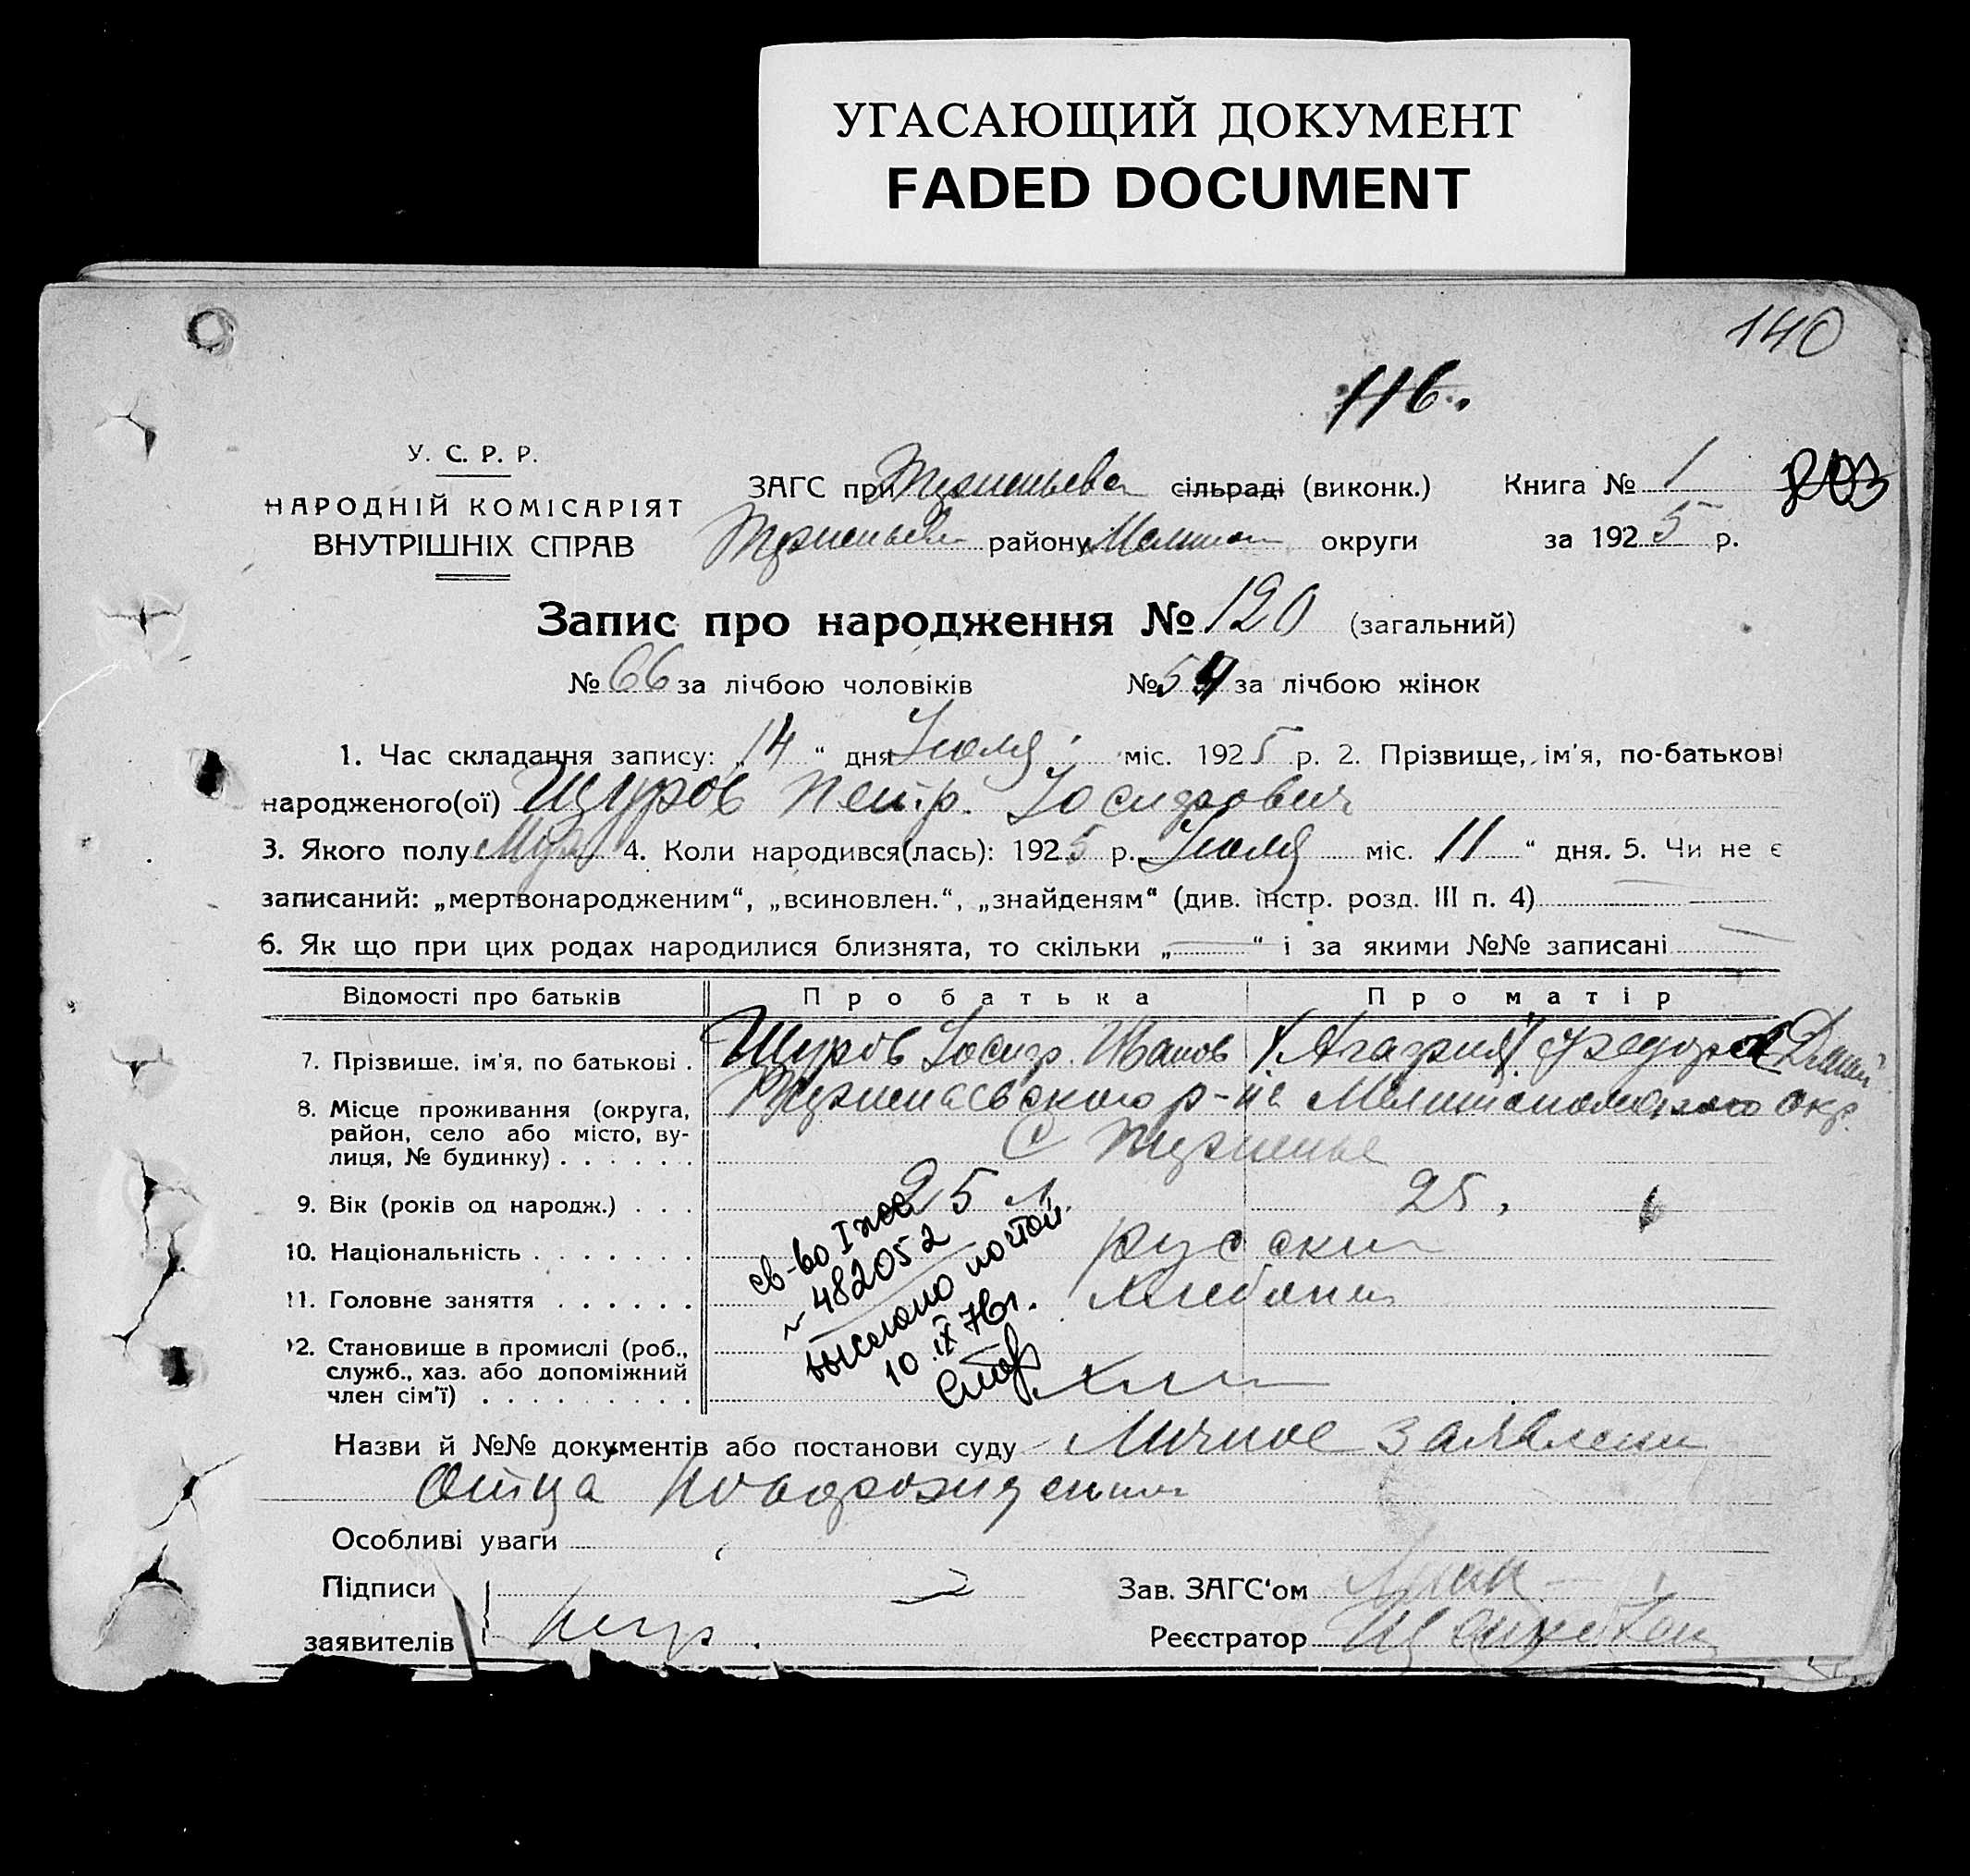 УГАСАЮЩИЙ ДОКУМЕНТ
FADED DOCUMENT
140
116.
У. С. Р. Р.
НАРОДНІЙ КОМІСАРІЯТ
ВНУТРІШНІХ СПРАВ
ЗАГС при сільраді (виконк.) Книга № 1
району округи за 1925 р.
Запис про народження № 120 (загальний)
№ 66 за лічбою чоловіків № 54 за лічбою жінок
1. Час складання запису: „14“ дня Июля міс. 1925 р. 2. Прізвище, ім'я, по-батькові
народженого(ої) Щуров Петр Иосифович
3. Якого полу Муж 4. Коли народився(лась): 1925 р. Июля міс. 11“ дня. 5. Чи не є
записаний: „мертвонародженим“, „всиновлен.“, „знайденям“ (див. інстр. розд. III п. 4)
6. Як що при цих родах народилися близнята, то скільки „—“ і за якими №№ записані
Відомості про батьків Про батька Про матір
7. Прізвище, ім'я, по батькові . Щуров Иосиф. Иванов
8. Місце проживання (округа, р-на Мелитопольского окр.
район, село або місто, ву-
лиця, № будинку) . . . . . . с
9. Вік (років од народж.) . . . 25 л. 25.
10. Національність . . . . . . . русские
11. Головне заняття . . . . . .
12. Становище в промислі (роб.,
служб., хаз. або допоміжний
член сім'ї) . . . . . . . . .
св-во I
482052
выслано почтой
10 IX 76г.
Назви й №№ документів або постанови суду Личное заявлени
отца
Особливі уваги
Підписи Зав. ЗАГС'ом
заявителів Реєстратор